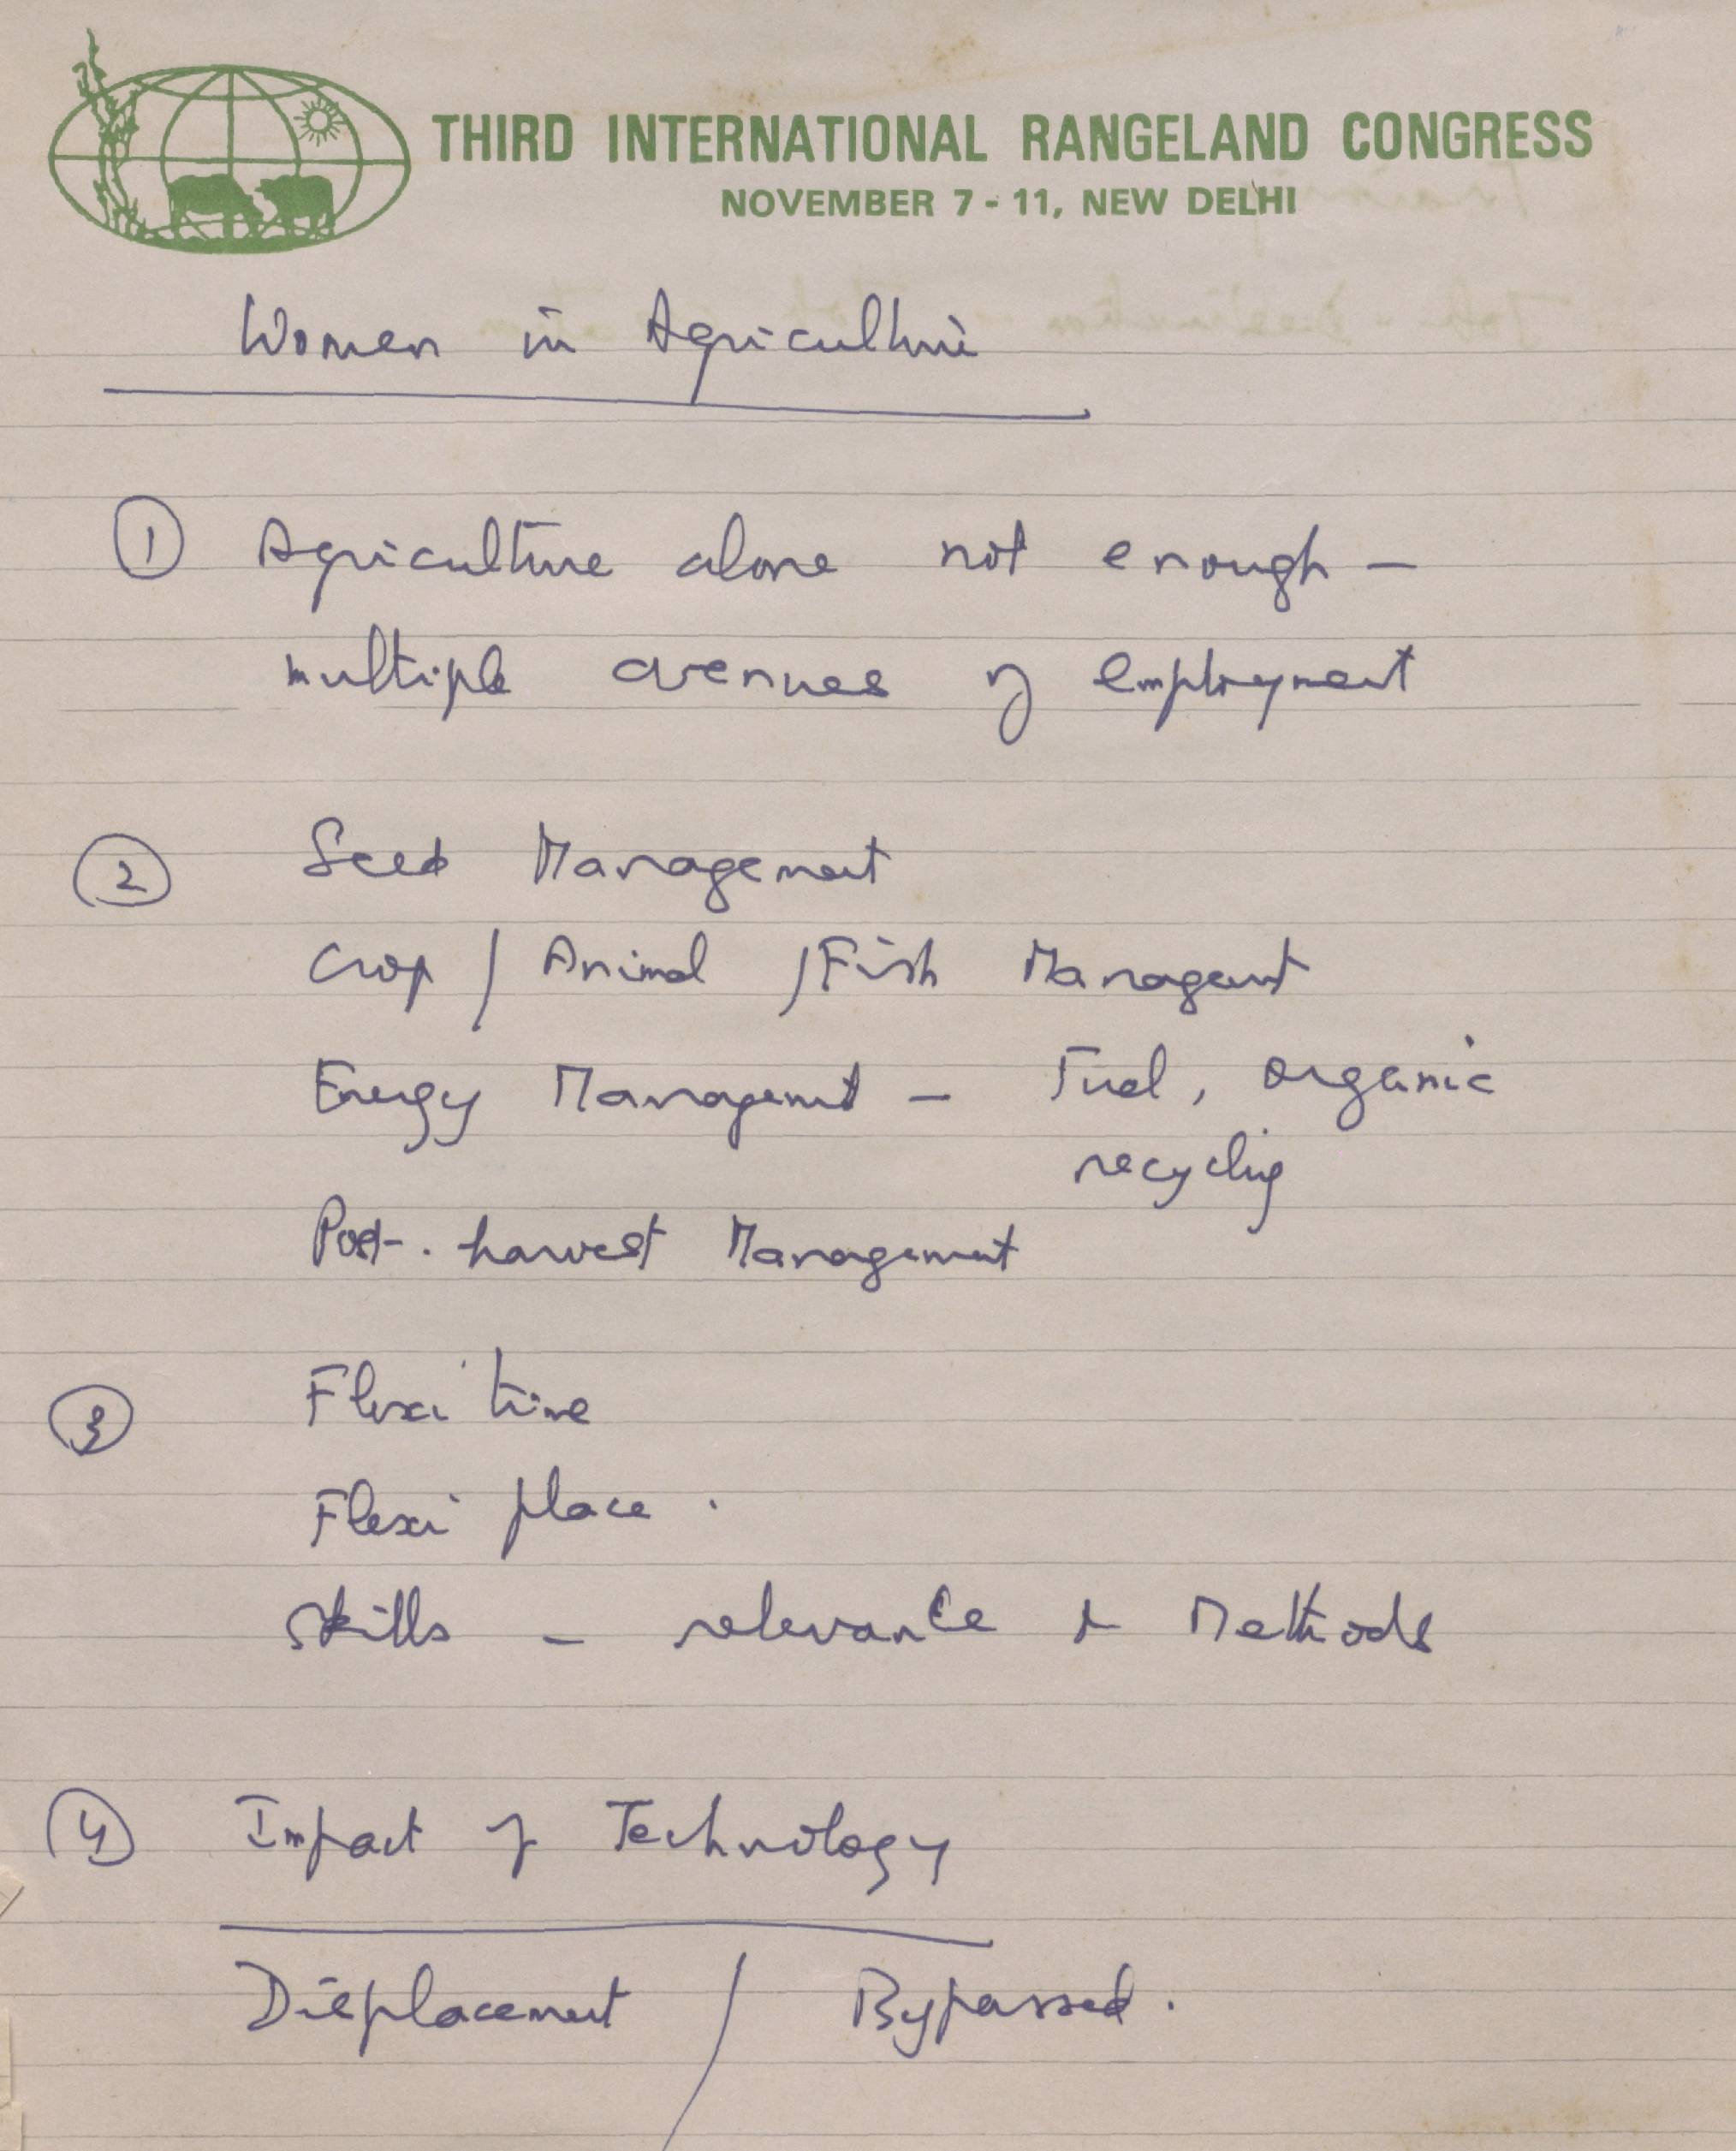 THIRD INTERNATIONAL RANGELAND CONGRESS
NOVEMBER 7 - 11, NEW DELHI
Women in Agriculture
① Agriculture alone not enough —
multiple avenues of employment
② Seed Management
Crop / Animal / Fish Management
Energy Management — Fuel, organic
recycling
Post-harvest Management
③ Flexi time
Flexi place.
Skills — relevance & Methods
④ Impact of Technology
Displacement / Bypassed.